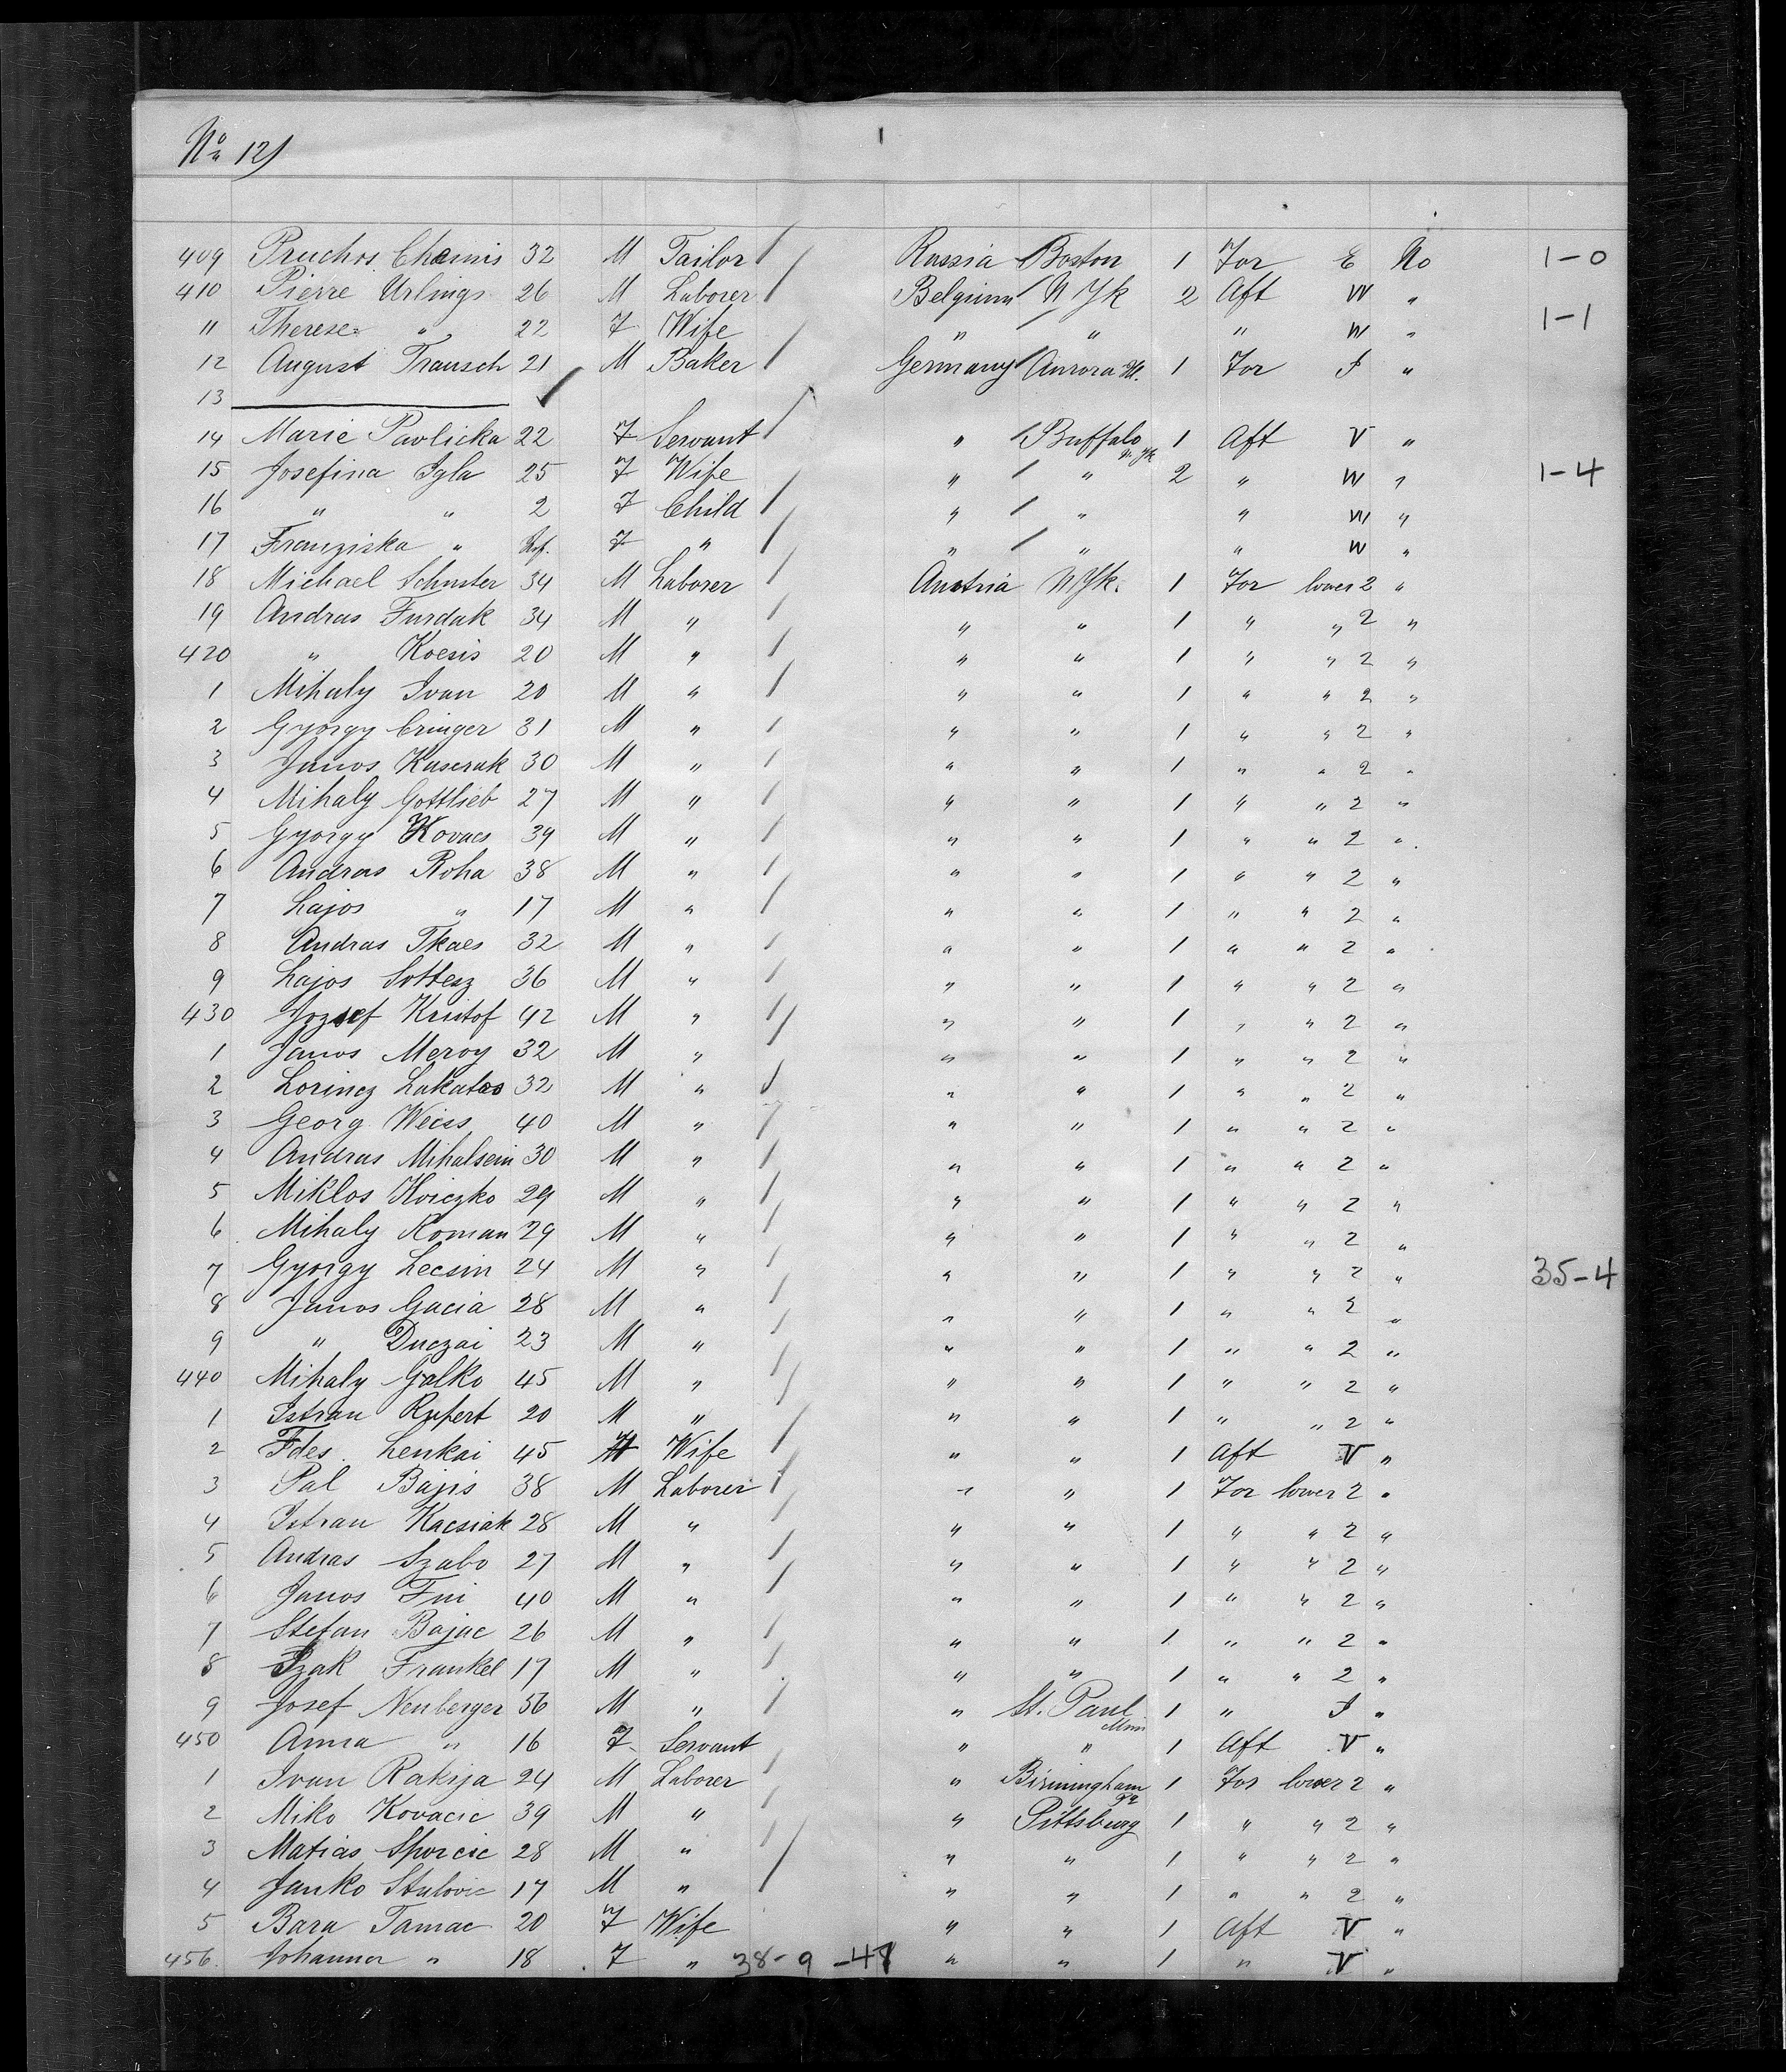 No 12)
409 Pruchos Chamis 32 M Tailor Russia Boston 1 For E No 1-0
410 Pierre Urlings 26 M Laborer Belgium N Yk 2 Aft W "
11 Therese " 22 F Wife " " " W " 1-1
12 August Trausch 21 M Baker Germany Aurora Ill. 1 For I "
13
14 Marie Pavlicka 22 F Servant " Buffalo N. Yk 1 Aft V "
15 Josefina Igla 25 F Wife " " 2 " W " 1-4
16 " " 2 F Child " " " W "
17 Franziska " Inf. F " " " " W "
18 Michael Schuster 34 M Laborer Austria N Yk. 1 For lower 2 "
19 Andras Furdak 34 M " " " 1 " " 2 "
420 " Kocsis 20 M " " " 1 " " 2 "
1 Mihaly Ivan 20 M " " " 1 " " 2 "
2 Gyorgy Cringer 31 M " " " 1 " " 2 "
3 Janos Kuserak 30 M " " " 1 " " 2 "
4 Mihaly Gottlieb 27 M " " " 1 " " 2 "
5 Gyorgy Kovacs 39 M " " " 1 " " 2 "
6 Andras Roha 38 M " " " 1 " " 2 "
7 Lajos " 17 M " " " 1 " " 2 "
8 Andras Tkacs 32 M " " " 1 " " 2 "
9 Lajos Sottesz 36 M " " " 1 " " 2 "
430 Jozsef Kristof 42 M " " " 1 " " 2 "
1 Janos Meroy 32 M " " " 1 " " 2 "
2 Lorincz Lakatos 32 M " " " 1 " " 2 "
3 Georg Weiss 40 M " " " 1 " " 2 "
4 Andras Mihalsein 30 M " " " 1 " " 2 "
5 Miklos Hviczko 29 M " " " 1 " " 2 "
6 Mihaly Roman 29 M " " " 1 " " 2 "
7 Gyorgy Lecsin 24 M " " " 1 " " 2 " 35-4
8 Janos Gacia 28 M " " " 1 " " 2 "
9 " Duczai 23 M " " " 1 " " 2 "
440 Mihaly Galko 45 M " " " 1 " " 2 "
1 Istran Rupert 20 M " " " 1 " " 2 "
2 Fdes. Lenkai 45 F Wife " " 1 Aft V "
3 Pal Bajis 38 M Laborer " " 1 For lower 2 "
4 Istran Kacsiak 28 M " " " 1 " " 2 "
5 Andras Szabo 27 M " " " 1 " " 2 "
6 Janos Fui 40 M " " " 1 " " 2 "
7 Stefan Bajac 26 M " " " 1 " " 2 "
8 Izak Frankel 17 M " " " 1 " " 2 "
9 Josef Neuberger 56 M " " St. Paul Minn 1 " I "
450 Anna " 16 F Servant " " 1 Aft V "
1 Ivan Rakija 24 M Laborer " Birmingham Pa 1 For lower 2 "
2 Miko Kovacic 39 M " " Pittsburg 1 " " 2 "
3 Matias Sporcic 28 M " " " 1 " " 2 "
4 Janko Stulovic 17 M " " " 1 " " 2 "
5 Bara Tamac 20 F Wife " " 1 Aft V "
456. Johanna " 18 F " 38-9-47 " " 1 " V "